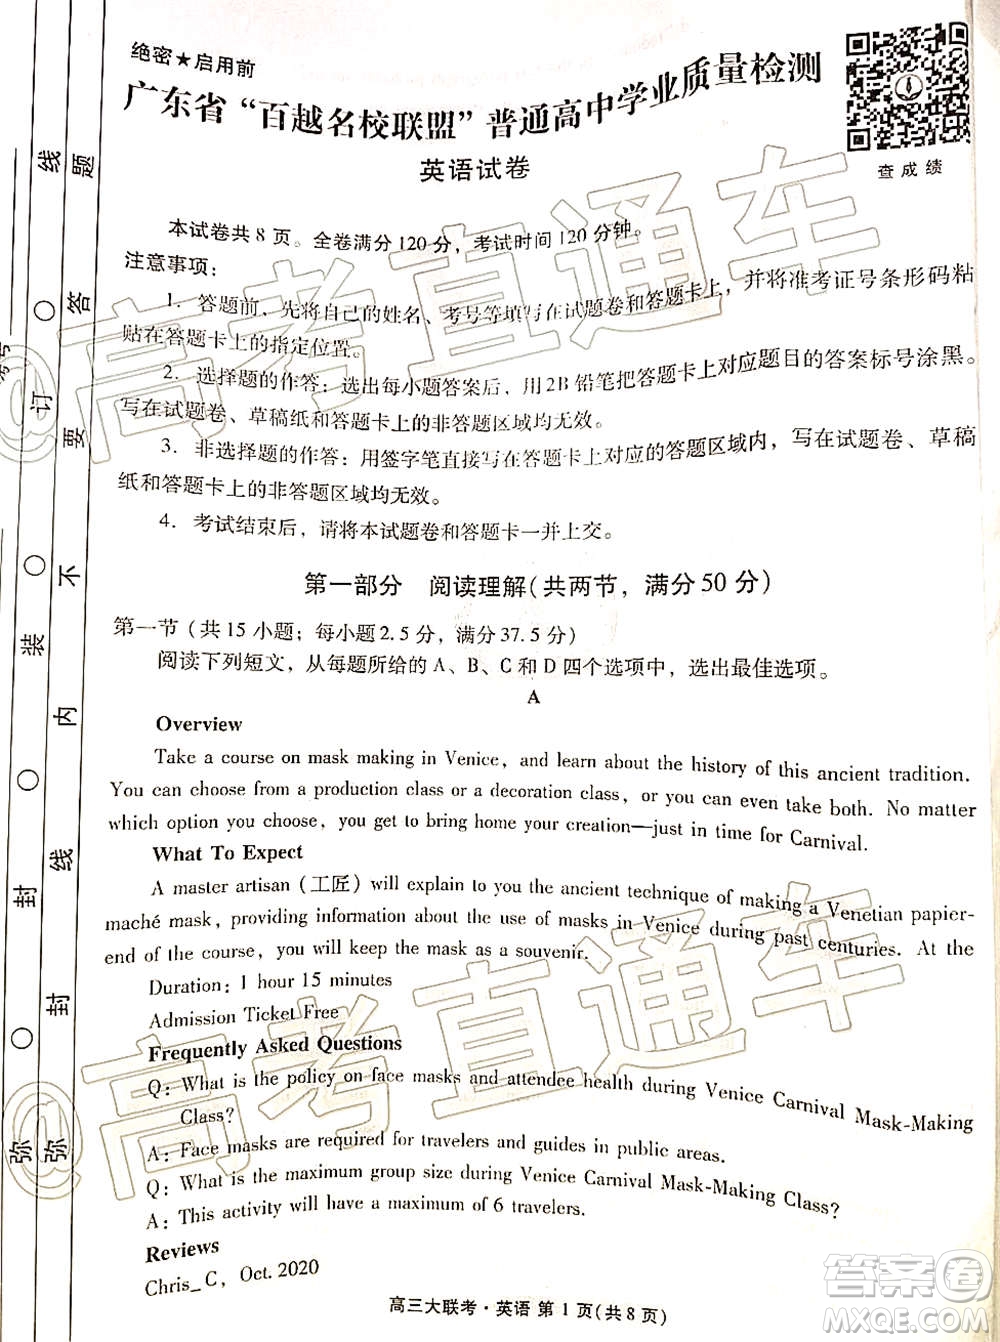 绝密★启用前
广东省“百越名校联盟”普通高中学业质量检测
英语试卷
查成绩
本试卷共8页。全卷满分120分，考试时间120分钟。
注意事项：
1. 答题前、先将自己的姓名、考号等填写在试题卷和答题卡上，并将准考证号条形码粘
贴在答题卡上的指定位置。
2. 选择题的作答：选出每小题答案后，用2B铅笔把答题卡上对应题目的答案标号涂黑。
写在试题卷、草稿纸和答题卡上的非答题区域均无效。
3. 非选择题的作答：用签字笔直接写在答题卡上对应的答题区域内，写在试题卷、草稿
纸和答题卡上的非答题区域均无效。
4. 考试结束后，请将本试题卷和答题卡一并上交。
第一部分 阅读理解(共两节，满分50分)
第一节（共15小题；每小题2.5分，满分37.5分）
阅读下列短文，从每题所给的A、B、C和D四个选项中，选出最佳选项。
A
Overview
Take a course on mask making in Venice, and learn about the history of this ancient tradition.
You can choose from a production class or a decoration class, or you can even take both. No matter
which option you choose, you get to bring home your creation—just in time for Carnival.
What To Expect
A master artisan (工匠) will explain to you the ancient technique of making a Venetian papier-
maché mask, providing information about the use of masks in Venice during past centuries. At the
end of the course, you will keep the mask as a souvenir.
Duration: 1 hour 15 minutes
Admission Ticket Free
Frequently Asked Questions
Q: What is the policy on face masks and attendee health during Venice Carnival Mask-Making
Class?
A: Face masks are required for travelers and guides in public areas.
Q: What is the maximum group size during Venice Carnival Mask-Making Class?
A: This activity will have a maximum of 6 travelers.
Reviews
Chris_C, Oct. 2020
高三大联考·英语 第1页(共8页)
弥 封 装 订 线
弥 封 线 内 不 要 答 题
@高考直通车
@高考直通车
答案卷
MXQE.COM